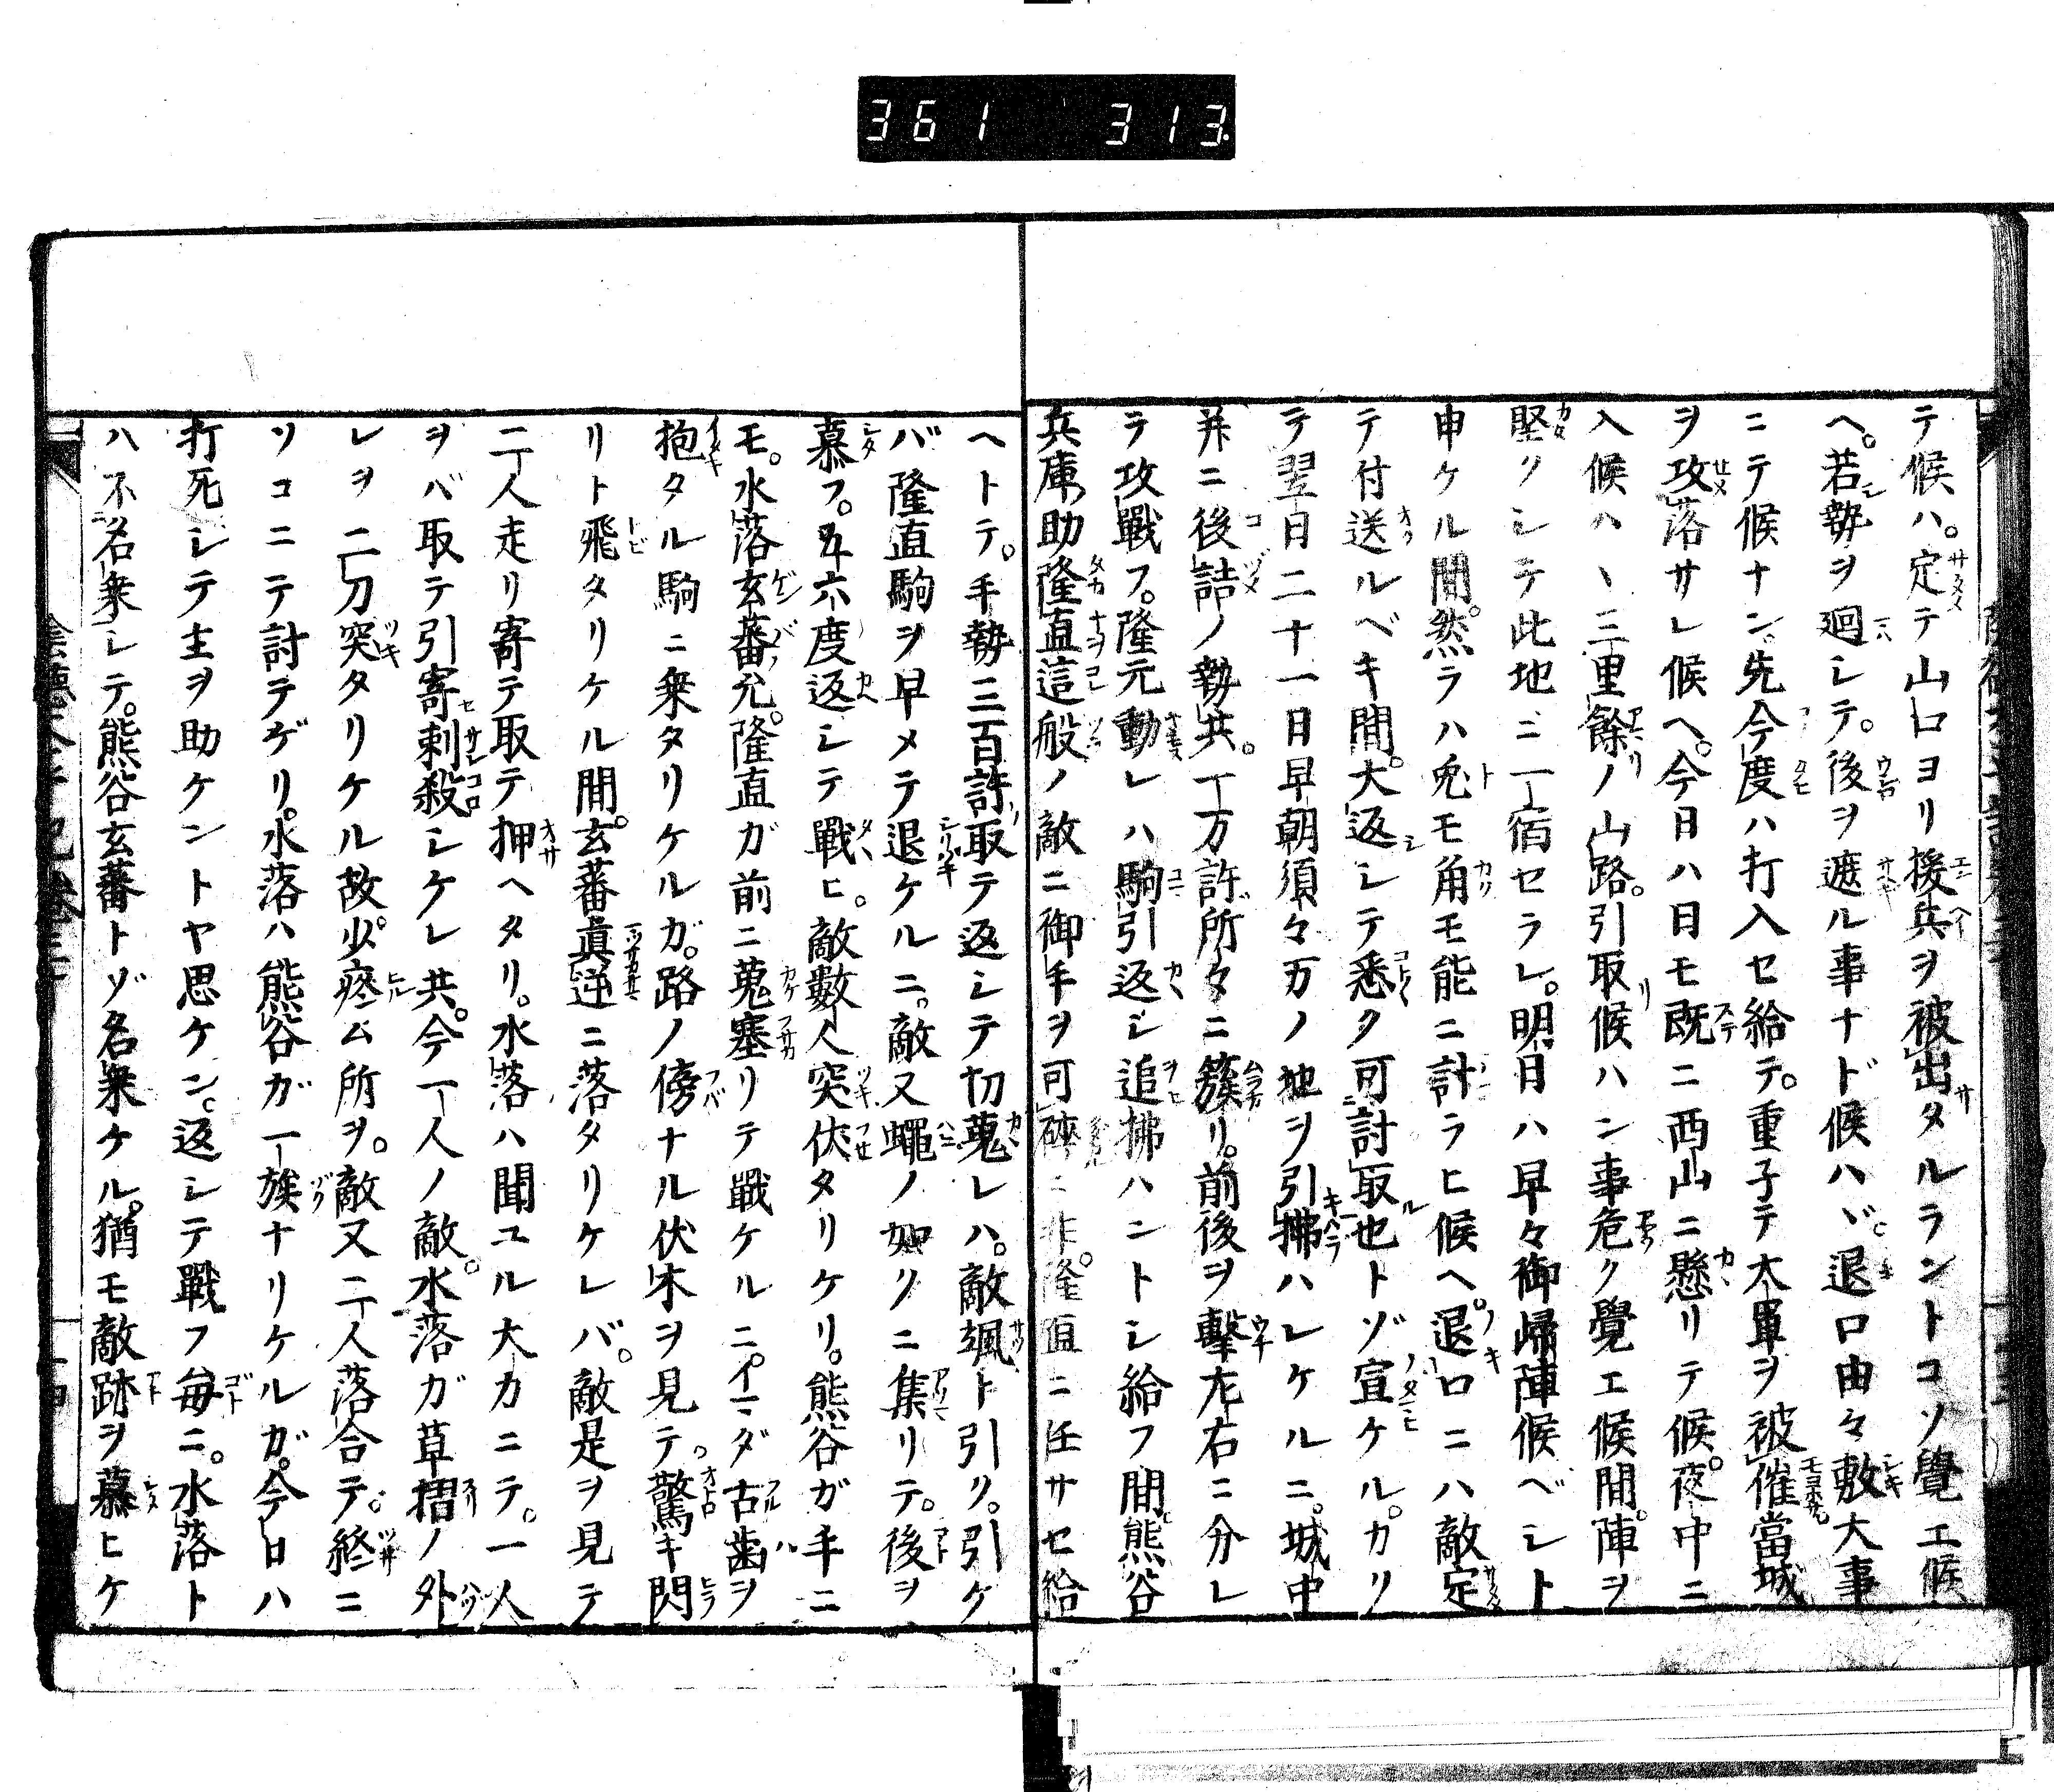 361 313
テ候ハ。定テ山口ヨリ援兵ヲ被出タルラントコソ覺エ候
ヘ。若勢ヲ廻シテ。後ヲ遮ル事ナド候ハヾ。退口由々敷大事
ニテ候ナン。先今度ハ打入セ給テ。重子テ大軍ヲ被催當城
ヲ攻落サレ候ヘ。今日ハ日モ既ニ西山ニ懸リテ候。夜中ニ
入候ハヽ三里餘ノ山路。引取候ハン事危ク覺エ候間。陣ヲ
堅クシテ此地ニ一宿セラレ。明日ハ早々御歸陣候ベシト
申ケル間。然ラハ兎モ角モ能ニ計ラヒ候ヘ。退口ニハ敵定
テ付送ルベキ間。大返シテ悉ク可討取也トゾ宣ケル。カリ
テ翌日二十一日早朝須々万ノ地ヲ引拂ハレケルニ。城中
并ニ後詰ノ勢共。一万許所々ニ簇リ。前後ヲ擊左右ニ分レ
テ攻戰フ。隆元動レハ駒引返シ追拂ハントシ給フ間。熊谷
兵庫助隆直這般ノ敵ニ御手ヲ可碎ニ非。隆直ニ任サセ給
ヘトテ。手勢三百許取テ返シテ切蒐レハ。敵颯ト引ク。引ケ
バ隆直駒ヲ早メテ退ケルニ。敵又蠅ノ如クニ集リテ。後ヲ
慕フ。五六度返シテ戰ヒ。敵數人突伏タリケリ。熊谷ガ手ニ
モ。水落玄蕃允。隆直ガ前ニ蒐塞リテ戰ケルニ。イマダ古歯ヲ
抱タル駒ニ乗タリケルガ。路ノ傍ナル伏木ヲ見テ。驚キ閃
リト飛タリケル間。玄蕃眞逆ニ落タリケレバ。敵是ヲ見テ
二人走リ寄テ取テ押ヘタリ。水落ハ聞ユル大力ニテ。一人
ヲバ取テ引寄刺殺シケレ共。今一人ノ敵。水落ガ草摺ノ外
レヲ二刀突タリケル故。少疼ム所ヲ。敵又二人落合テ。終ニ
ソコニテ討テゲリ。水落ハ熊谷ガ一族ナリケルガ。今日ハ
打死シテ主ヲ助ケントヤ思ケン。返シテ戰フ毎ニ。水落ト
ハ不名乗シテ。熊谷玄蕃トゾ名乗ケル。猶モ敵跡ヲ慕ヒケ